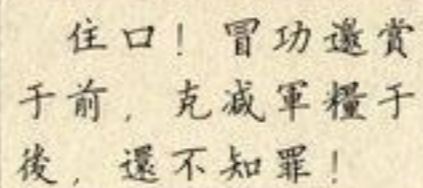 住口！冒功邀賞
于前，克减軍糧于
後，還不知罪！